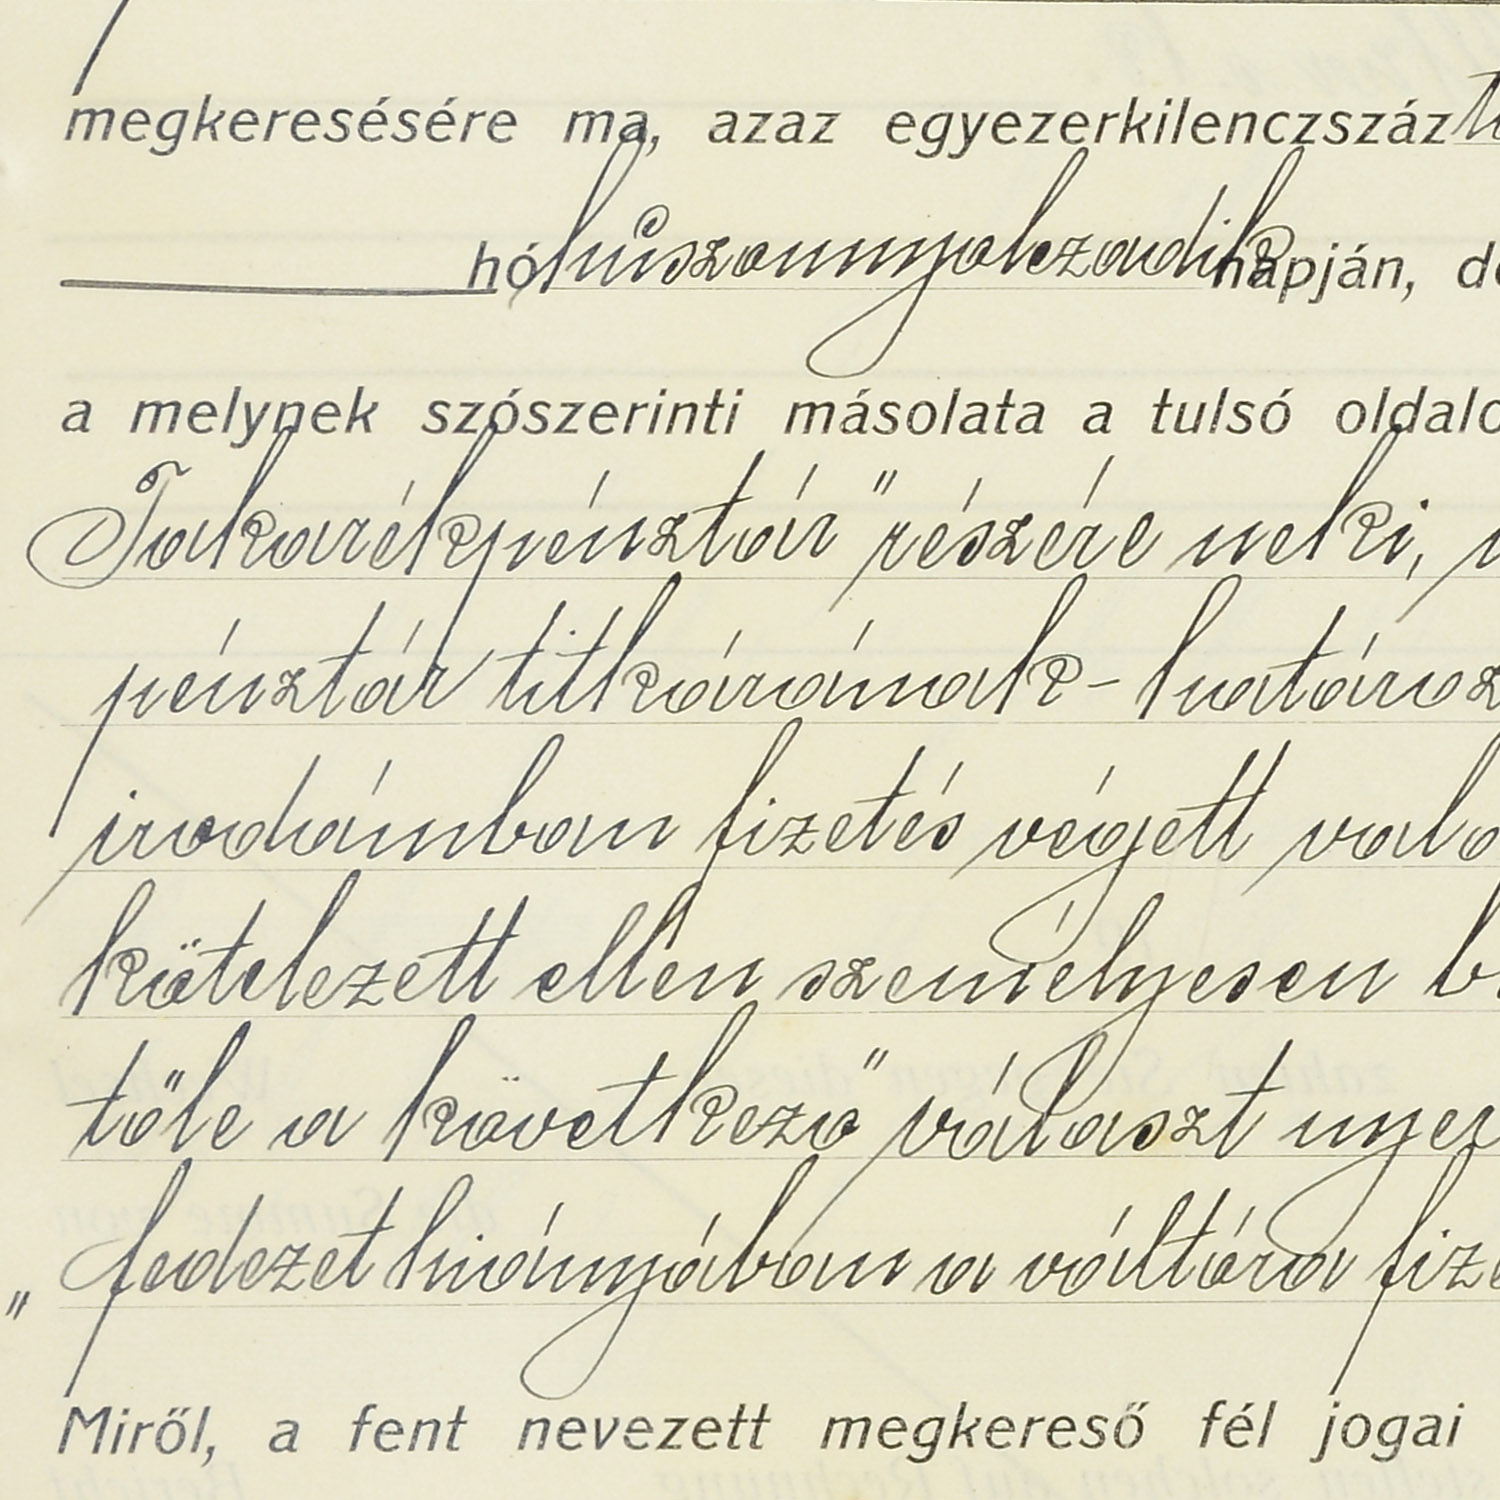 megkeresésére ma, azaz egyezerkilenczszáz
hó huszonnyolczadik napján, de
a melynek szószerinti másolata a tulsó oldalo
Takarékpénztár" részére neki,
pénztár titkárának - határoz
irodámban fizetés végett val
kötelezett ellen személyesen b
tőle a következő választ nyer
„fedezet hiányában a váltóra fize
Miről, a fent nevezett megkereső fél jogai